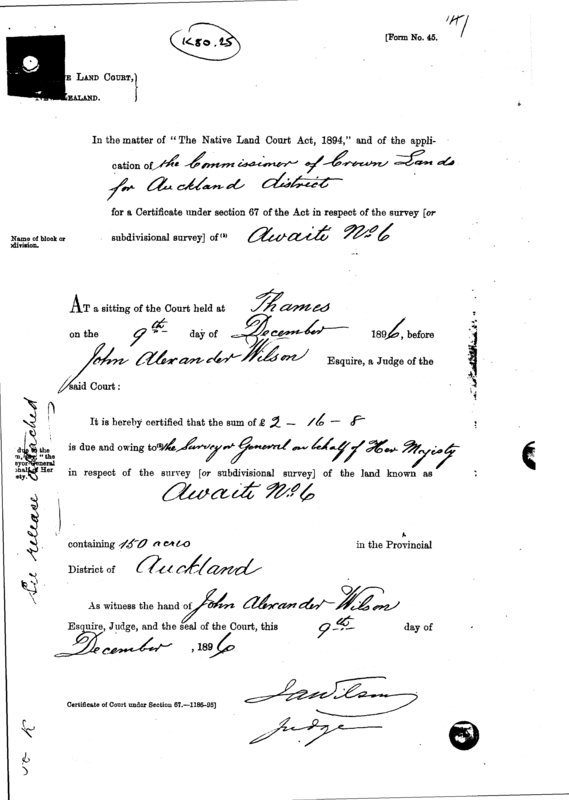 K80.25
[Form No. 45.
E LAND COURT,
ZEALAND.
In the matter of "The Native Land Court Act, 1894," and of the appli-
cation of the Commissioner of Crown Lands
for Auckland district
for a Certificate under section 67 of the Act in respect of the survey [or
Name of block or
subdivision.
subdivisional survey] of (1) Awaite No 6
AT a sitting of the Court held at Thames
on the 9th day of December 1896, before
John Alexander Wilson Esquire, a Judge of the
said Court:
It is hereby certified that the sum of £ 2 - 16 - 8
is due and owing to the Surveyor General on behalf of Her Majesty
in respect of the survey [or subdivisional survey] of the land known as
Awaite No 6
See release attached
containing 150 acres in the Provincial
District of Auckland
As witness the hand of John Alexander Wilson
Esquire, Judge, and the seal of the Court, this 9th day of
December, 1896
Certificate of Court under Section 67.—1186-95]
JAWilson
Judge